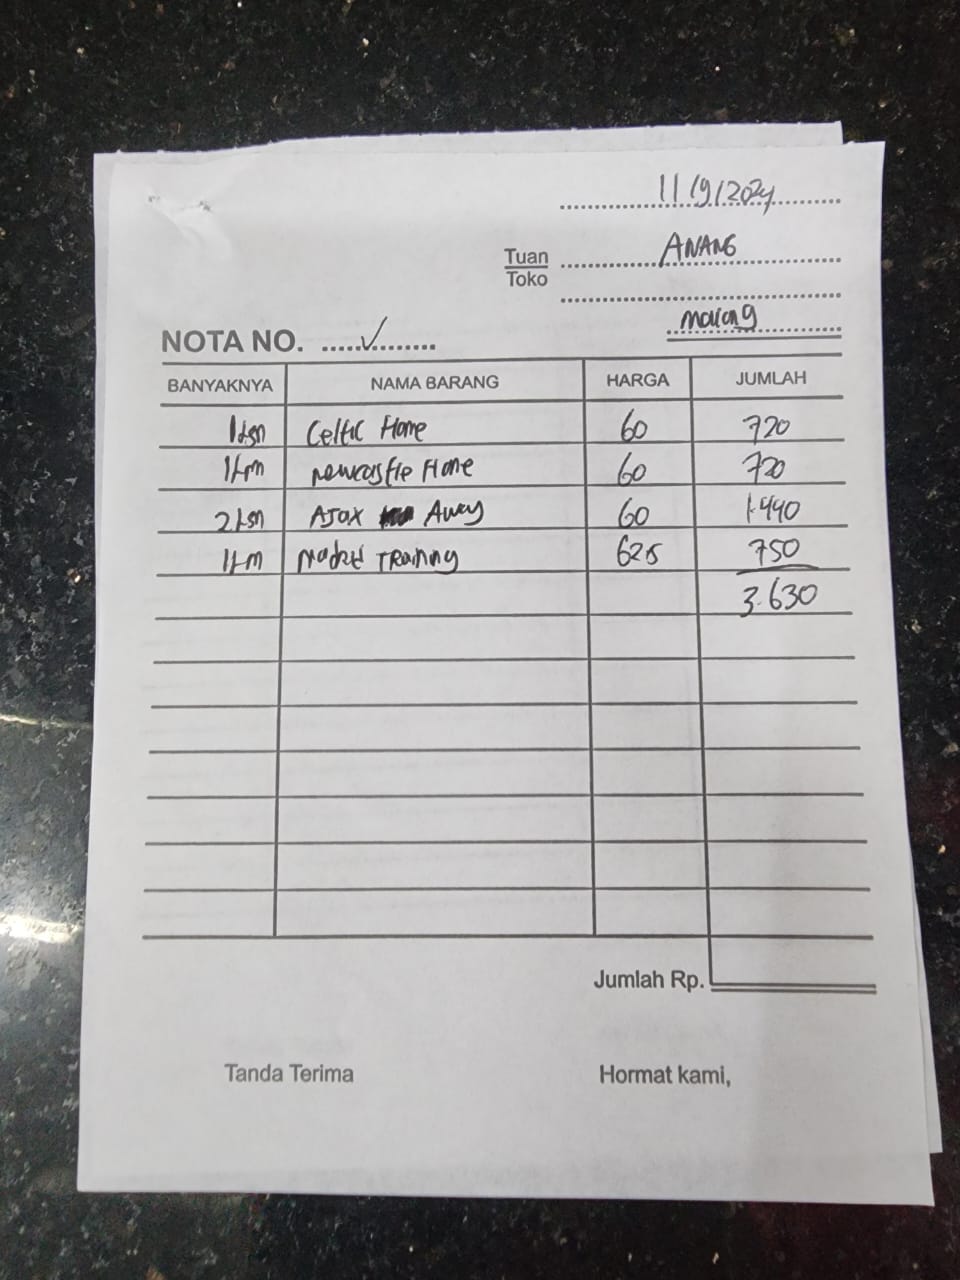 11/9/2024
Tuan ANANG
Toko
malang
NOTA NO. .....✓........
BANYAKNYA NAMA BARANG HARGA JUMLAH
1 lsn Celtic Home 60 720
1 lsn Newcastle Home 60 720
2 lsn AJAX Away 60 1.440
1 lsn Madrid TRaining 625 750
3.630
Jumlah Rp.
Tanda Terima Hormat kami,